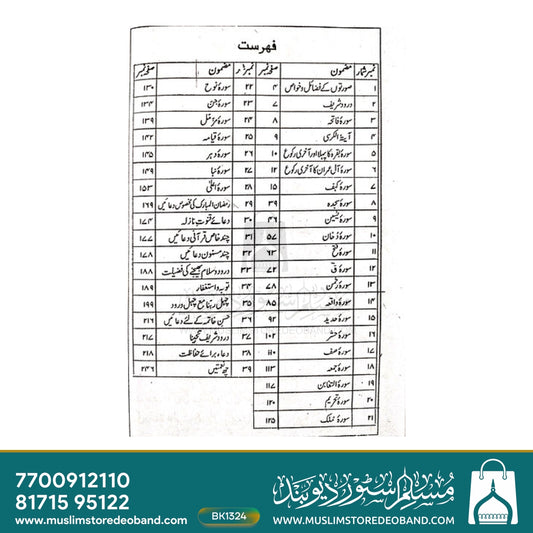 فہرست
نمبر شمار مضمون صفحہ نمبر
۱ صورتوں کے فضائل و خواص ۴
۲ درود شریف ۷
۳ سورۂ فاتحہ ۸
۴ آیۃ الکرسی ۹
۵ سورۂ بقرہ کا پہلا اور آخری رکوع ۱۰
۶ سورۂ آل عمران کا آخری رکوع ۱۲
۷ سورۂ کہف ۱۵
۸ سورۂ سجدہ ۳۹
۹ سورۂ یٰسین ۴۶
۱۰ سورۂ دخان ۵۷
۱۱ سورۂ فتح ۶۳
۱۲ سورۂ قٓ ۷۲
۱۳ سورۂ رحمٰن ۷۸
۱۴ سورۂ واقعہ ۸۵
۱۵ سورۂ حدید ۹۲
۱۶ سورۂ حشر ۱۰۲
۱۷ سورۂ صف ۱۱۰
۱۸ سورۂ جمعہ ۱۱۳
۱۹ سورۃ التغابن ۱۱۷
۲۰ سورۂ تحریم ۱۲۰
۲۱ سورۂ ملک ۱۲۵
مضمون صفحہ نمبر
۲۲ سورۂ نوح ۱۳۰
۲۳ سورۂ جن ۱۳۴
۲۴ سورۂ مزمل ۱۳۹
۲۵ سورۂ قیامہ ۱۴۲
۲۶ سورۂ دہر ۱۴۵
۲۷ سورۂ نبا ۱۴۹
۲۸ سورۂ اعلیٰ ۱۵۳
۲۹ رمضان المبارک کی مخصوص دعائیں ۱۶۹
۳۰ دعائے قنوت نازلہ ۱۷۴
۳۱ چند خاص قرآنی دعائیں ۱۷۷
۳۲ چند مسنون دعائیں ۱۷۸
۳۳ درود و سلام بھیجنے کی فضیلت ۱۸۸
۳۴ توبہ و استغفار ۱۸۹
۳۵ چہل ربنا مع چہل درود ۱۹۹
۳۶ حسن خاتمہ کے لئے دعائیں ۲۱۶
۳۷ درود شریف تنجینا ۲۱۷
۳۸ دعاء برائے حفاظت ۲۱۸
۳۹ چھ نعتیں ۲۴۶
7700912110
81715 95122
www.muslimstoredeoband.com
BK1324
مسلم سٹور دیوبند
WWW.MUSLIMSTOREDEOBAND.COM